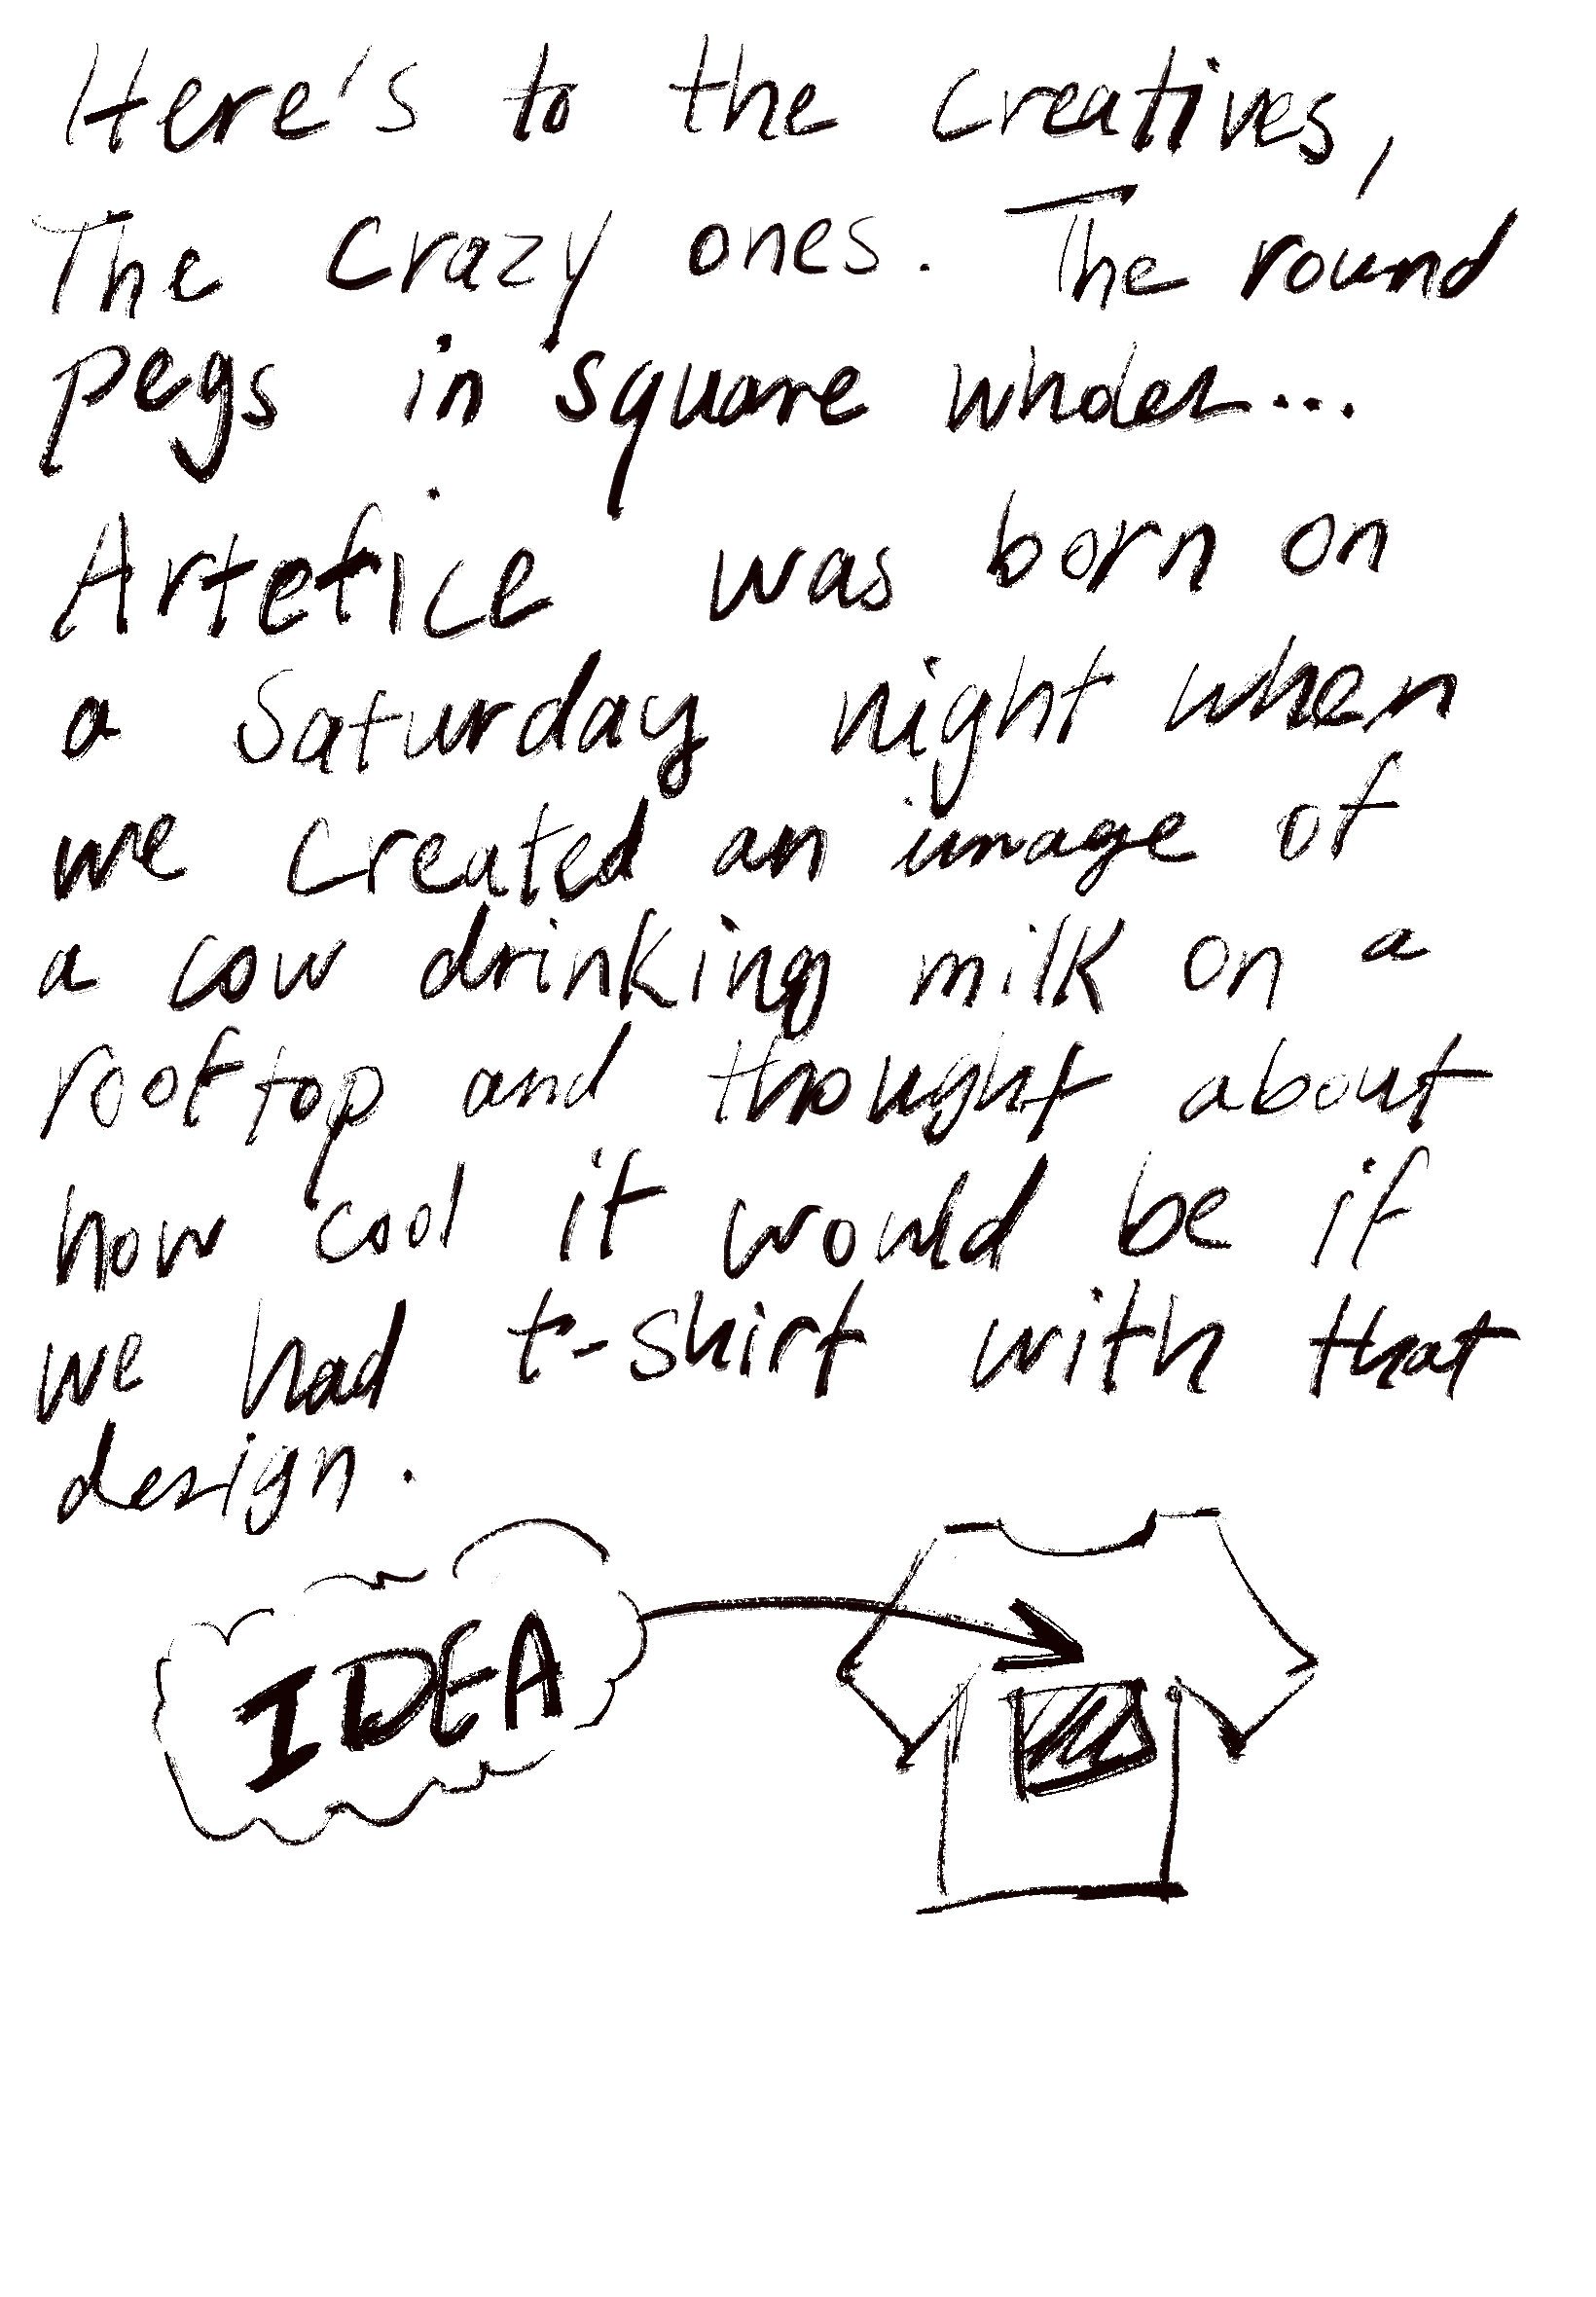 Here's to the creatives,
The crazy ones. The round
pegs in square wholes...
Artefice was born on
a Saturday night when
we created an image of
a cow drinking milk on a
rooftop and thought about
how cool it would be if
we had t-shirt with that
design.
IDEA